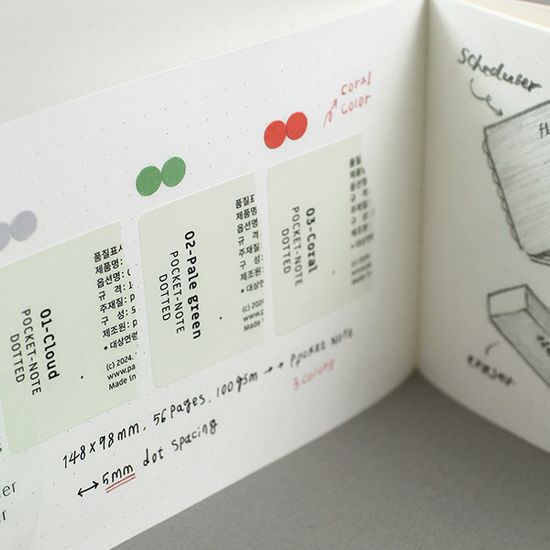 coral
color
Scheduler
01-Cloud
POCKET-NOTE
DOTTED
품질표시
제품명:
옵션명:
규 격:
주재질:
구 성:
제조원:
* 대상연령
(c) 2024.
www.pa
Made in
02-Pale green
POCKET-NOTE
DOTTED
품질표
제품명
옵션명
규 격
주재질
구 성
제조원
* 대상
(c) 202
www.p
Made i
03-Coral
POCKET-NOTE
DOTTED
품질표
제품명
옵션명
규 격
주재질
구 성
제조원
(c) 20
Made
148x98mm. 56 pages. 100gsm → Ppocket Note
3 colors
5mm dot spacing
eraser